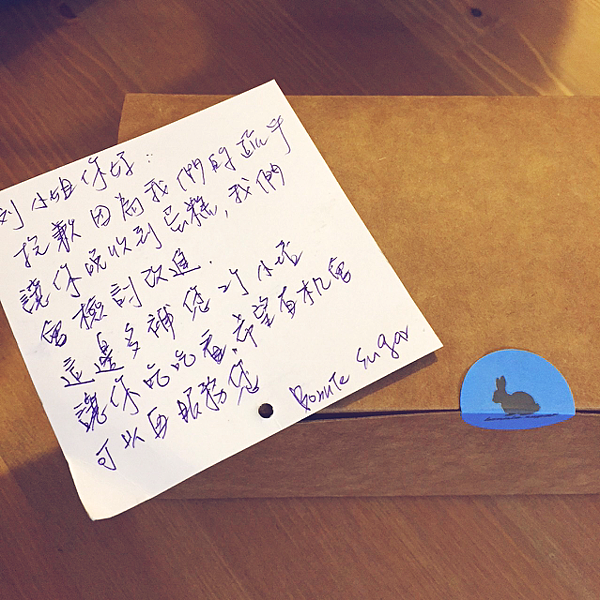 刘小姐你好:
抱歉因為我們的疏乎
讓你晚收到蛋糕,我們
會檢討改進.
這邊多補您2小塔
讓你吃吃看,希望有机會
可以再服務您
Bonnie Sugar